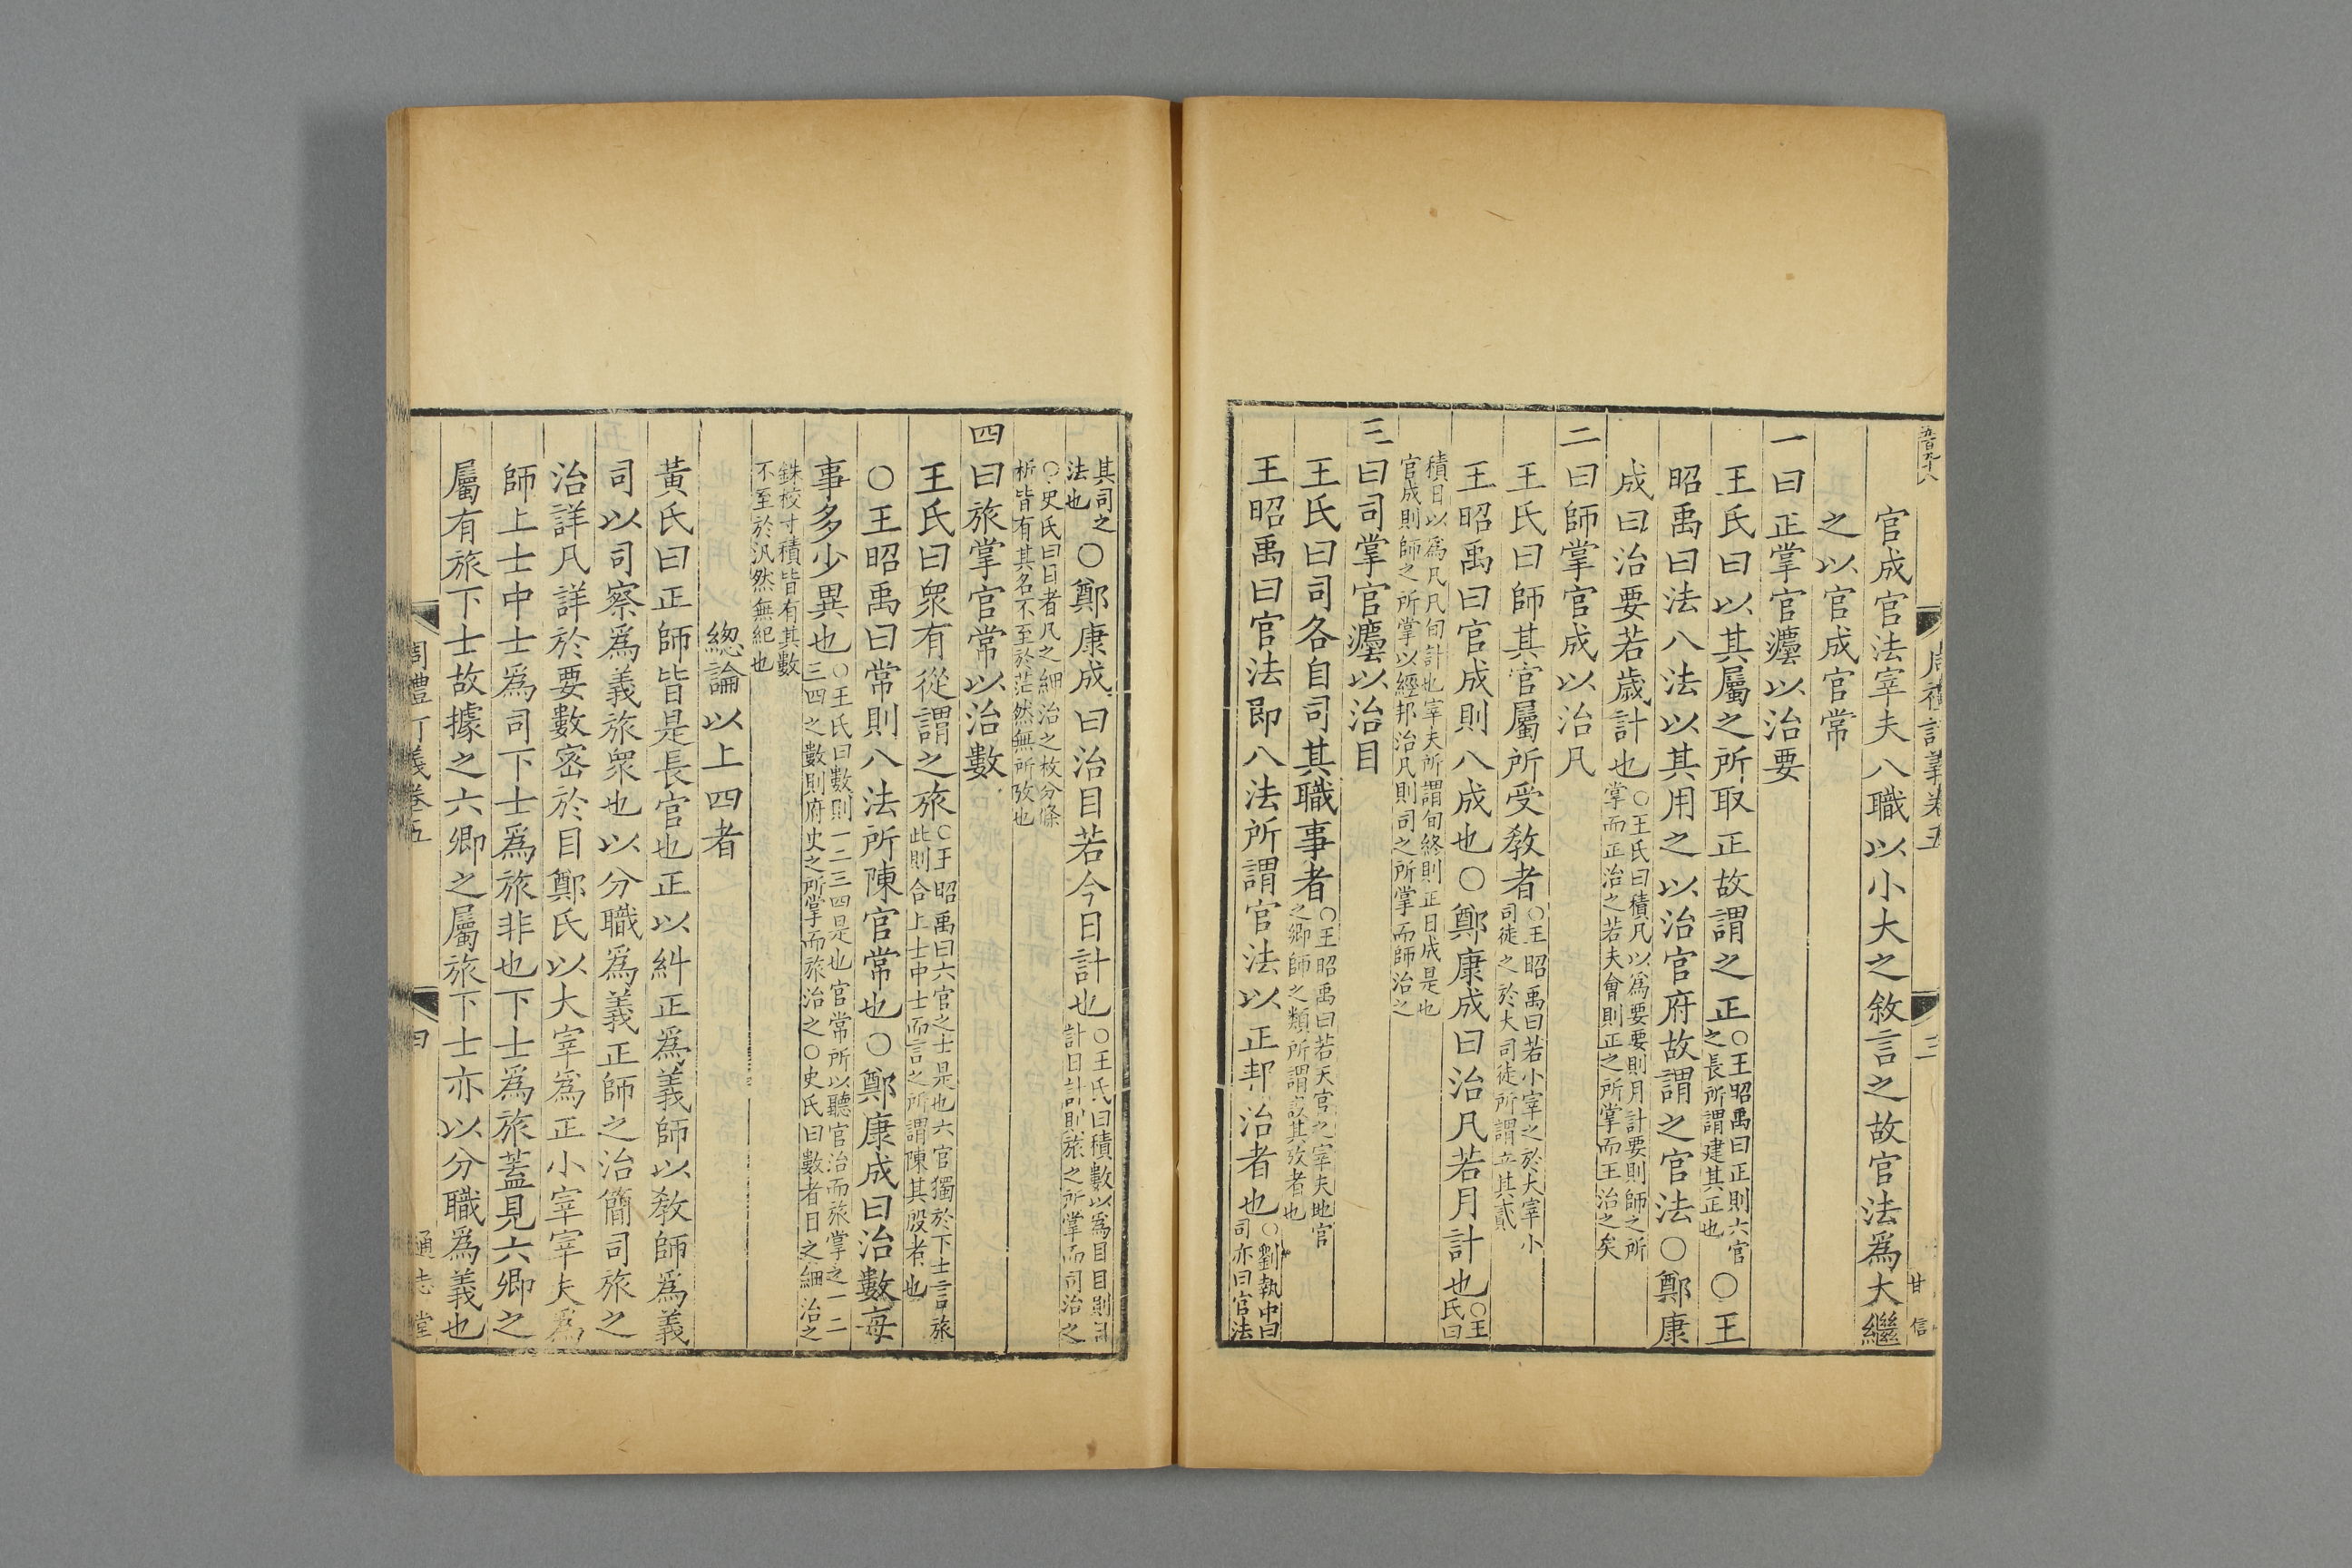 五百九十八
周禮訂義卷五
三
甘信
官成官法宰夫八職以小大之敘言之故官法爲大繼
之以官成官常
一曰正掌官灋以治要
王氏曰以其屬之所取正故謂之正○王昭禹曰正則六官之長所謂建其正也○王
昭禹曰法八法以其用之以治官府故謂之官法○鄭康
成曰治要若歲計也○王氏曰積凡以爲要要則月計要則師之所掌而正治之若夫會則正之所掌而王治之矣
二曰師掌官成以治凡
王氏曰師其官屬所受教者○王昭禹曰若小宰之於大宰小司徒之於大司徒所謂立其貳
王昭禹曰官成則八成也○鄭康成曰治凡若月計也○王氏曰
積日以爲凡凡旬計也宰夫所謂旬終則正日成是也官成則師之所掌以經邦治凡則司之所掌而師治之
三曰司掌官灋以治目
王氏曰司各自司其職事者○王昭禹曰若天官之宰夫地官之鄉師之類所謂設其攷者也
王昭禹曰官法即八法所謂官法以正邦治者也○劉執中曰司亦曰官法
其司之法也○鄭康成曰治目若今日計也○王氏曰積數以爲目目則日計日計則旅之所掌而司治之
○史氏曰目者凡之細治之枚分條析皆有其名不至於茫然無所攷也
四曰旅掌官常以治數
王氏曰衆有從謂之旅○王昭禹曰六官之士是也六官獨於下士言旅此則合上士中士而言之所謂陳其殷者也
○王昭禹曰常則八法所陳官常也○鄭康成曰治數每
事多少異也○王氏曰數則一二三四是也官常所以聽官治而旅掌之一二三四之數則府史之所掌而旅治之○史氏曰數者目之細治之
銖校寸積皆有其數不至於汎然無紀也
緫論以上四者
黃氏曰正師皆是長官也正以糾正爲義師以教師爲義
司以司察爲義旅衆也以分職爲義正師之治簡司旅之
治詳凡詳於要數密於目鄭氏以大宰爲正小宰宰夫爲
師上士中士爲司下士爲旅非也下士爲旅蓋見六卿之
屬有旅下士故據之六卿之屬旅下士亦以分職爲義也
周禮訂義卷五
四
通志堂